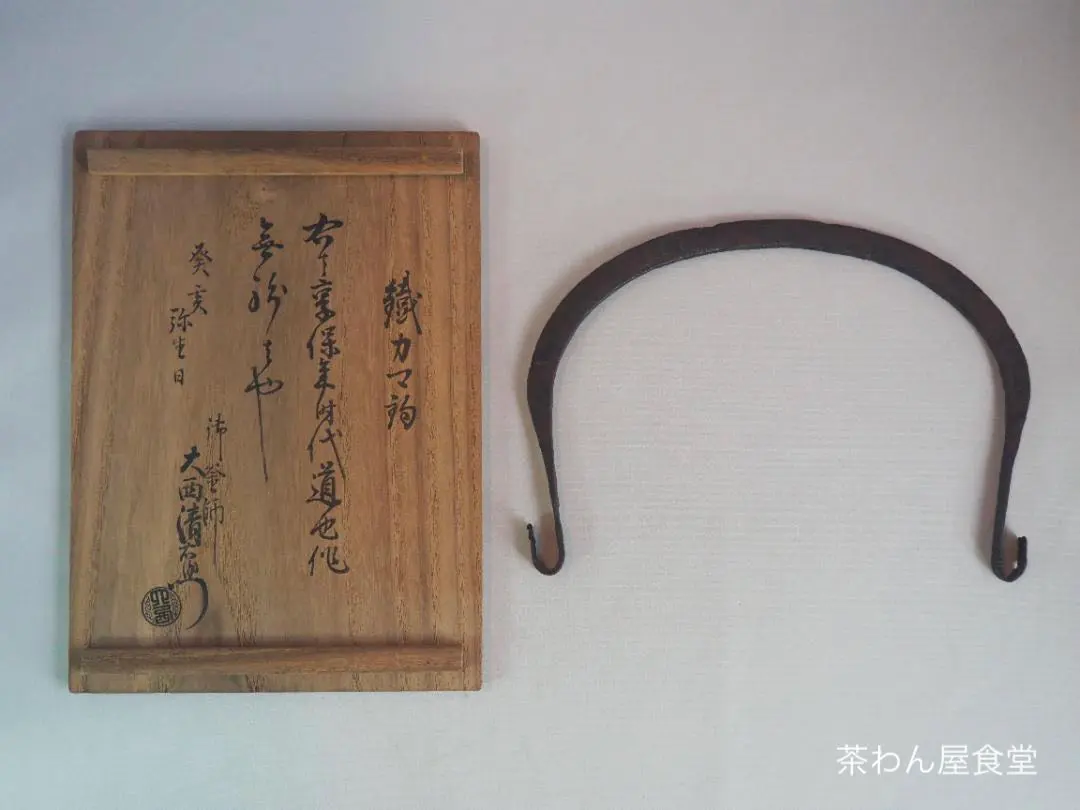 鐵カマ鈎
右ハ享保年時代道也作
無紛者也
癸亥
弥生日
御釜師
大西清右衛門
茶わん屋食堂